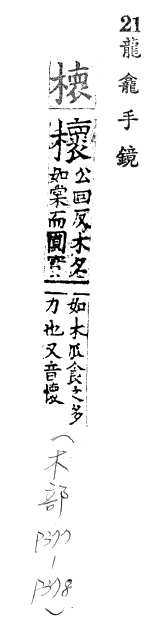 21 龍龕手鏡
櫰
公回反木名
如棠而圓實
如木瓜食之多
力也又音懷
(木部
P377
-
P378)